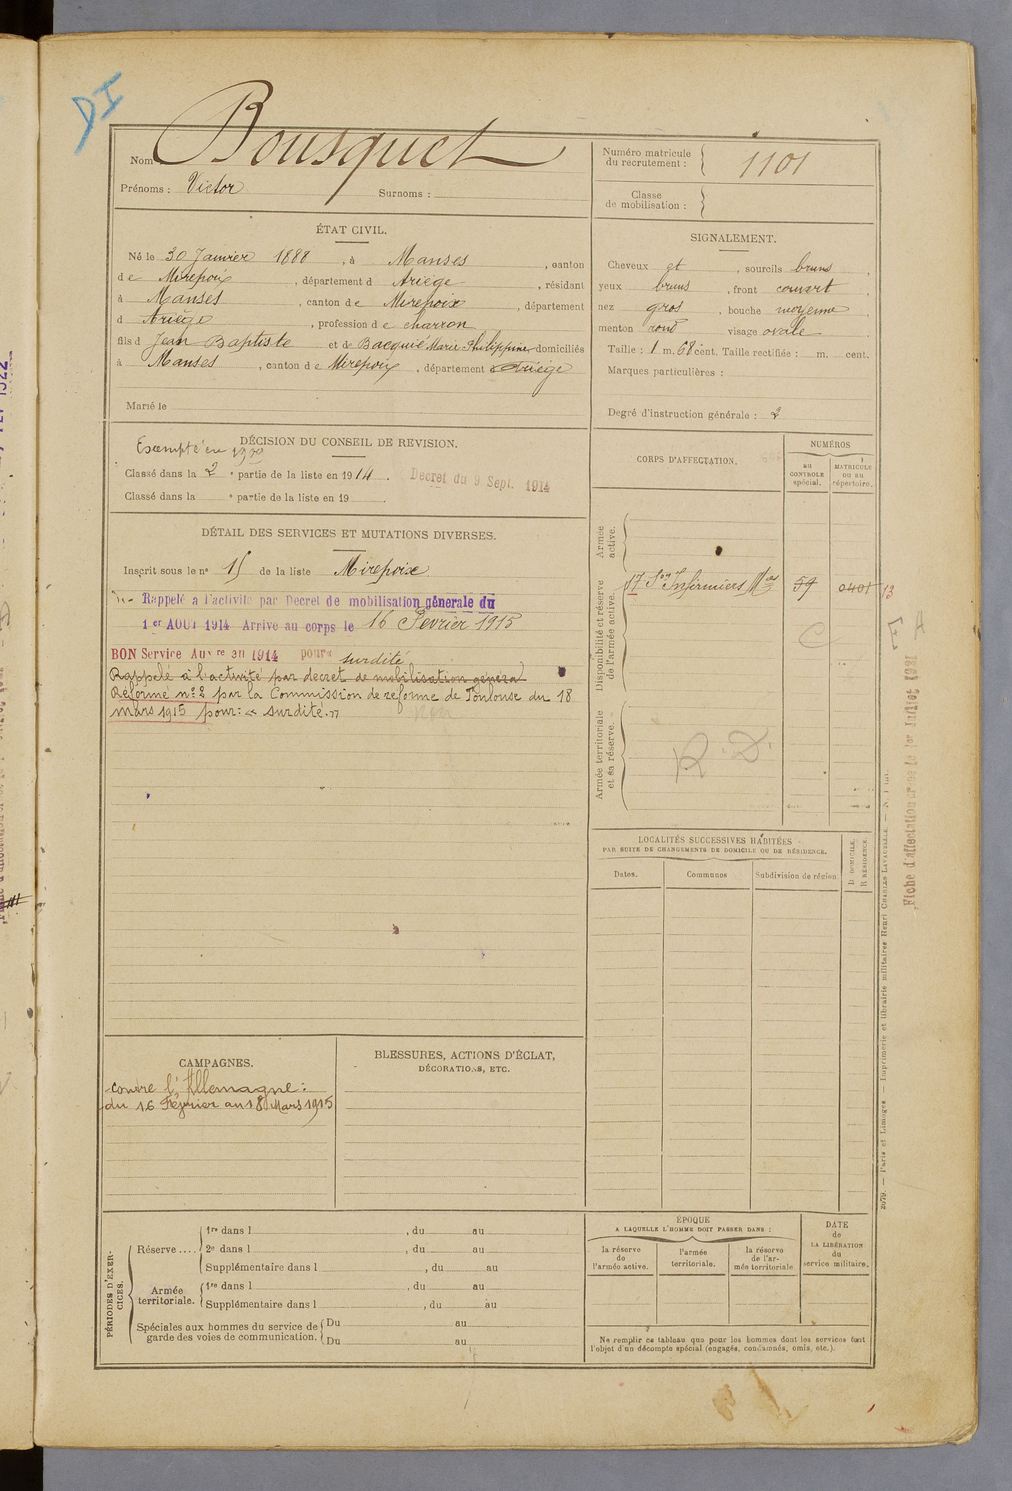 DI
Nom Bousquet
Prénoms : Victor Surnoms :
Numéro matricule du recrutement : 1101
Classe de mobilisation :
ÉTAT CIVIL.
Né le 30 Janvier 1888, à Manses, canton
de Mirepoix, département d Ariège, résidant
à Manses, canton de Mirepoix, département
d Ariège, profession de charron
fils d Jean Baptiste et de Bacquié Marie Philippine domiciliés
à Manses, canton de Mirepoix, département Ariège
Marié le
SIGNALEMENT.
Cheveux et, sourcils bruns
yeux bruns, front couvert
nez gros, bouche moyenne
menton rond visage ovale
Taille : 1 m. 68 cent. Taille rectifiée : m. cent.
Marques particulières :
Degré d'instruction générale : 2
DÉCISION DU CONSEIL DE REVISION.
Exempté en 1909
Classé dans la 2 e partie de la liste en 1914. Decret du 9 Sept. 1914
Classé dans la e partie de la liste en 19 .
DÉTAIL DES SERVICES ET MUTATIONS DIVERSES.
Inscrit sous le n° 15 de la liste Mirepoix
Rappelé à l'activité par Decret de mobilisation générale du
1er AOUT 1914 Arrivé au corps le 16 Février 1915
BON Service Auxre en 1914 pour surdité
Rappelé à l'activité par décret de mobilisation général
Réformé n° 2 par la Commission de réforme de Toulouse du 18
mars 1915 pour : « surdité. »
CORPS D'AFFECTATION.
NUMÉROS
au CONTROLE spécial.
MATRICULE ou au répertoire.
Armée active.
Disponibilité et réserve de l'armée active.
17 Son Infirmiers Mres 59 0401 13
Armée territoriale et sa réserve.
R. D.
LOCALITÉS SUCCESSIVES HABITÉES
PAR SUITE DE CHANGEMENTS DE DOMICILE OU DE RÉSIDENCE.
Dates. Communes Subdivision de région.
D DOMICILE. R RÉSIDENCE.
Fiche d'affectation créée le 1er Juillet 1921
CAMPAGNES.
contre l'Allemagne :
du 16 Février au 18 Mars 1915
BLESSURES, ACTIONS D'ÉCLAT,
DÉCORATIONS, ETC.
PÉRIODES D'EXERCICES.
Réserve ....
1re dans l , du au
2e dans l , du au
Supplémentaire dans l , du au
Armée territoriale.
1re dans l , du au
Supplémentaire dans l , du au
Spéciales aux hommes du service de garde des voies de communication.
Du au
Du au
ÉPOQUE
A LAQUELLE L'HOMME DOIT PASSER DANS :
la réserve de l'armée active.
l'armée territoriale.
la réserve de l'armée territoriale.
DATE de LA LIBÉRATION du service militaire.
Ne remplir ce tableau que pour les hommes dont les services font
l'objet d'un décompte spécial (engagés, condamnés, omis, etc.).
2079. — Paris et Limoges. — Imprimerie et librairie militaires Henri CHARLES-LAVAUZELLE.